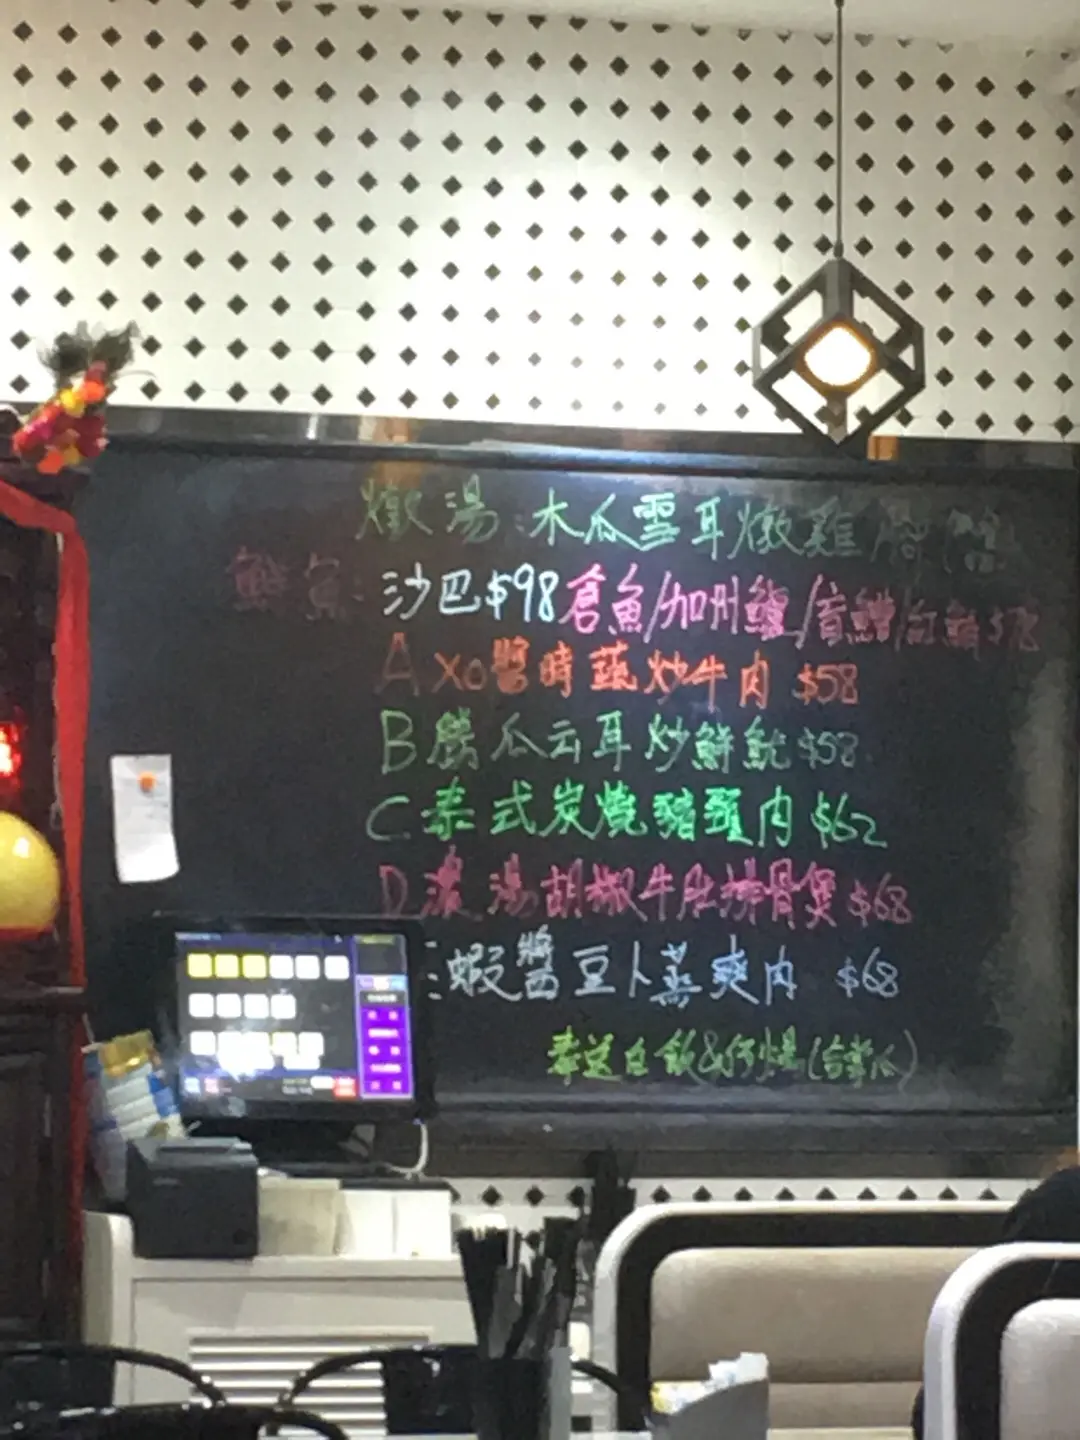 燉湯:木瓜雪耳燉雞
鮮魚:沙巴$98倉魚/加州鱸/盲鰽/紅鮋$78
A XO醬時蔬炒牛肉 $58
B 勝瓜云耳炒鮮魷 $58
C 泰式炭燒豬頸肉 $62
D 濃湯胡椒牛肚排骨煲 $68
蝦醬豆卜蒸爽肉 $68
奉送白飯&例湯(合掌瓜)